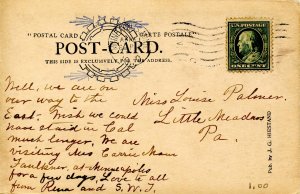 "POSTAL CARD CARTE POSTALE"
POST-CARD.
THIS SIDE IS EXCLUSIVELY FOR THE ADDRESS.
U.S. POSTAGE
ONE CENT
Well, we are on
our way to the
East. Wish we could
have staid in Cal
much longer. We are
visiting Mrs Carrie Mann
Faulkner, at Minneapolis
for a few days. Love to all
from Rena and S. W. T.
Miss Louise Palmer.
Little Meadows
Pa.
Pub. by J. G. HIESTAND
1.00